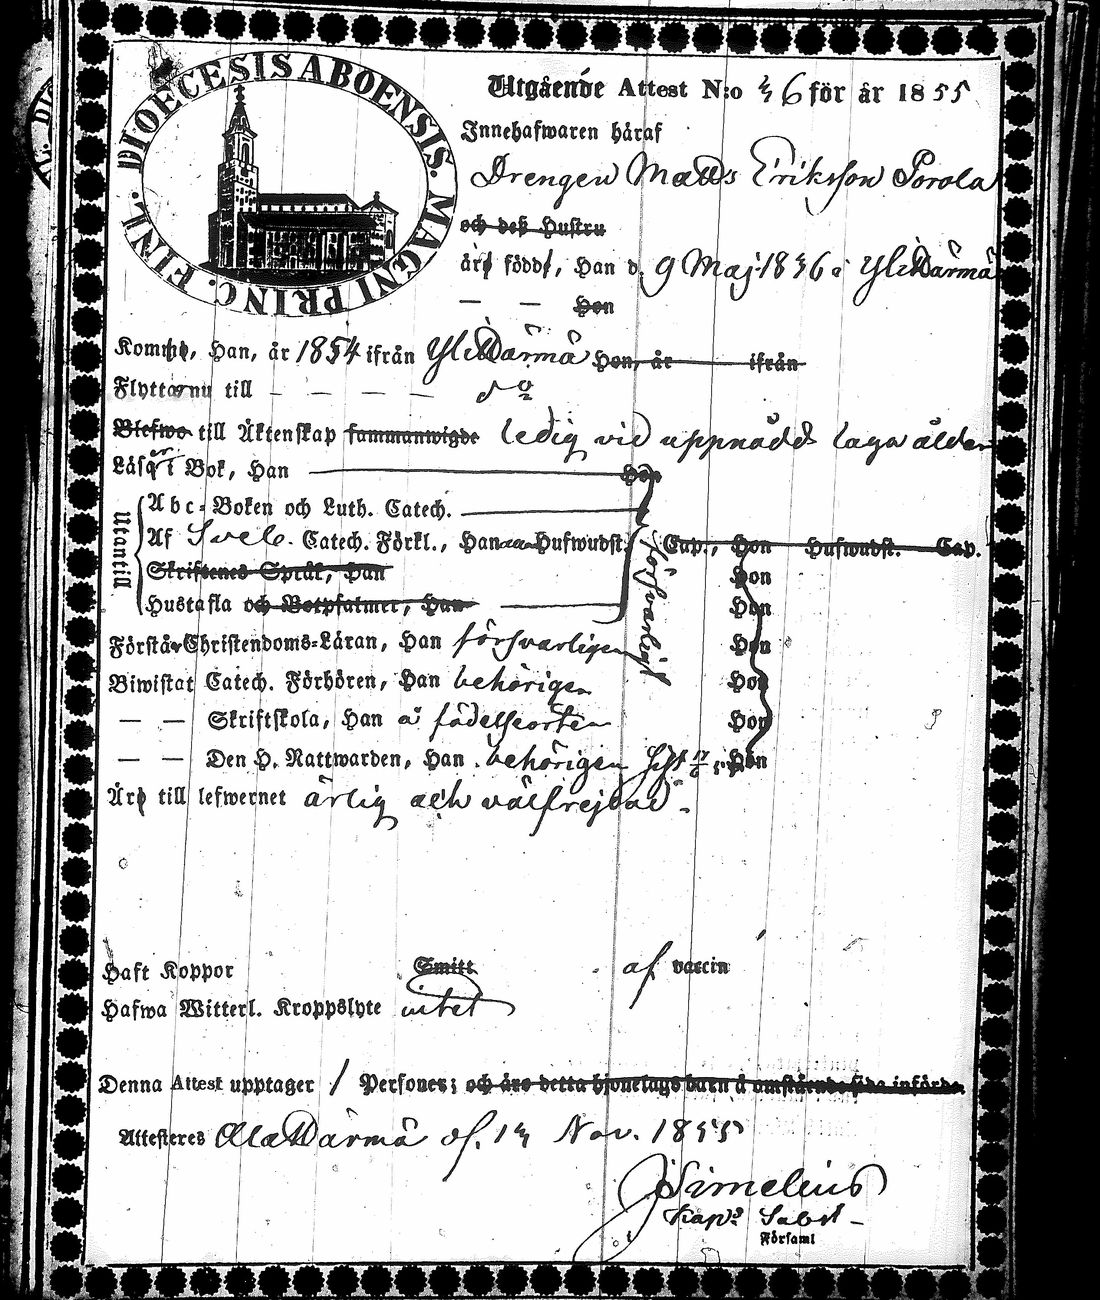 DIOECESIS ABOENSIS. MAGNI PRINC. FINL.
Utgående Attest N:o 36 för år 1855
Innehafwaren häraf
Drengen Matts Eriksson Porola
och deß Hustru
äro födde, Han d. 9 Maj 1836 i YliHärmä
— — Hon
Kommo, Han, år 1854 ifrån YliHärmä Hon, år ifrån
Flytta nu till — — — — — do
Blefwo till Äktenskap sammanwigde ledig vid uppnådd laga ålder
Läsa i Bok, Han Hon
Utantill
Abc-Boken och Luth. Catech.
Af Sveb. Catech. Förkl., Han Hufwudst. Cap., Hon Hufwudst. Cap.
försvarligt
Skriftenes Språk, Han Hon
Hustafla och Botpsalmer, Han Hon
Förstå Christendoms-Läran, Han försvarligen Hon
Biwistat Catech. Förhören, Han behörigen Hon
— — Skriftskola, Han å födelseorten Hon
— — Den H. Nattwarden, Han behörigen sist Hon
Äro till lefwernet ärlig och välfrejdad.
Haft Koppor Smitt af vaccin
Hafwa Witterl. Kroppslyte intet
Denna Attest upptager 1 Personer; och äro detta hjonelags barn å omstående sida införde.
Attesteras AlaHärmä d. 13 Nov. 1855
J Simelius
Kap:s Subst.
Församl